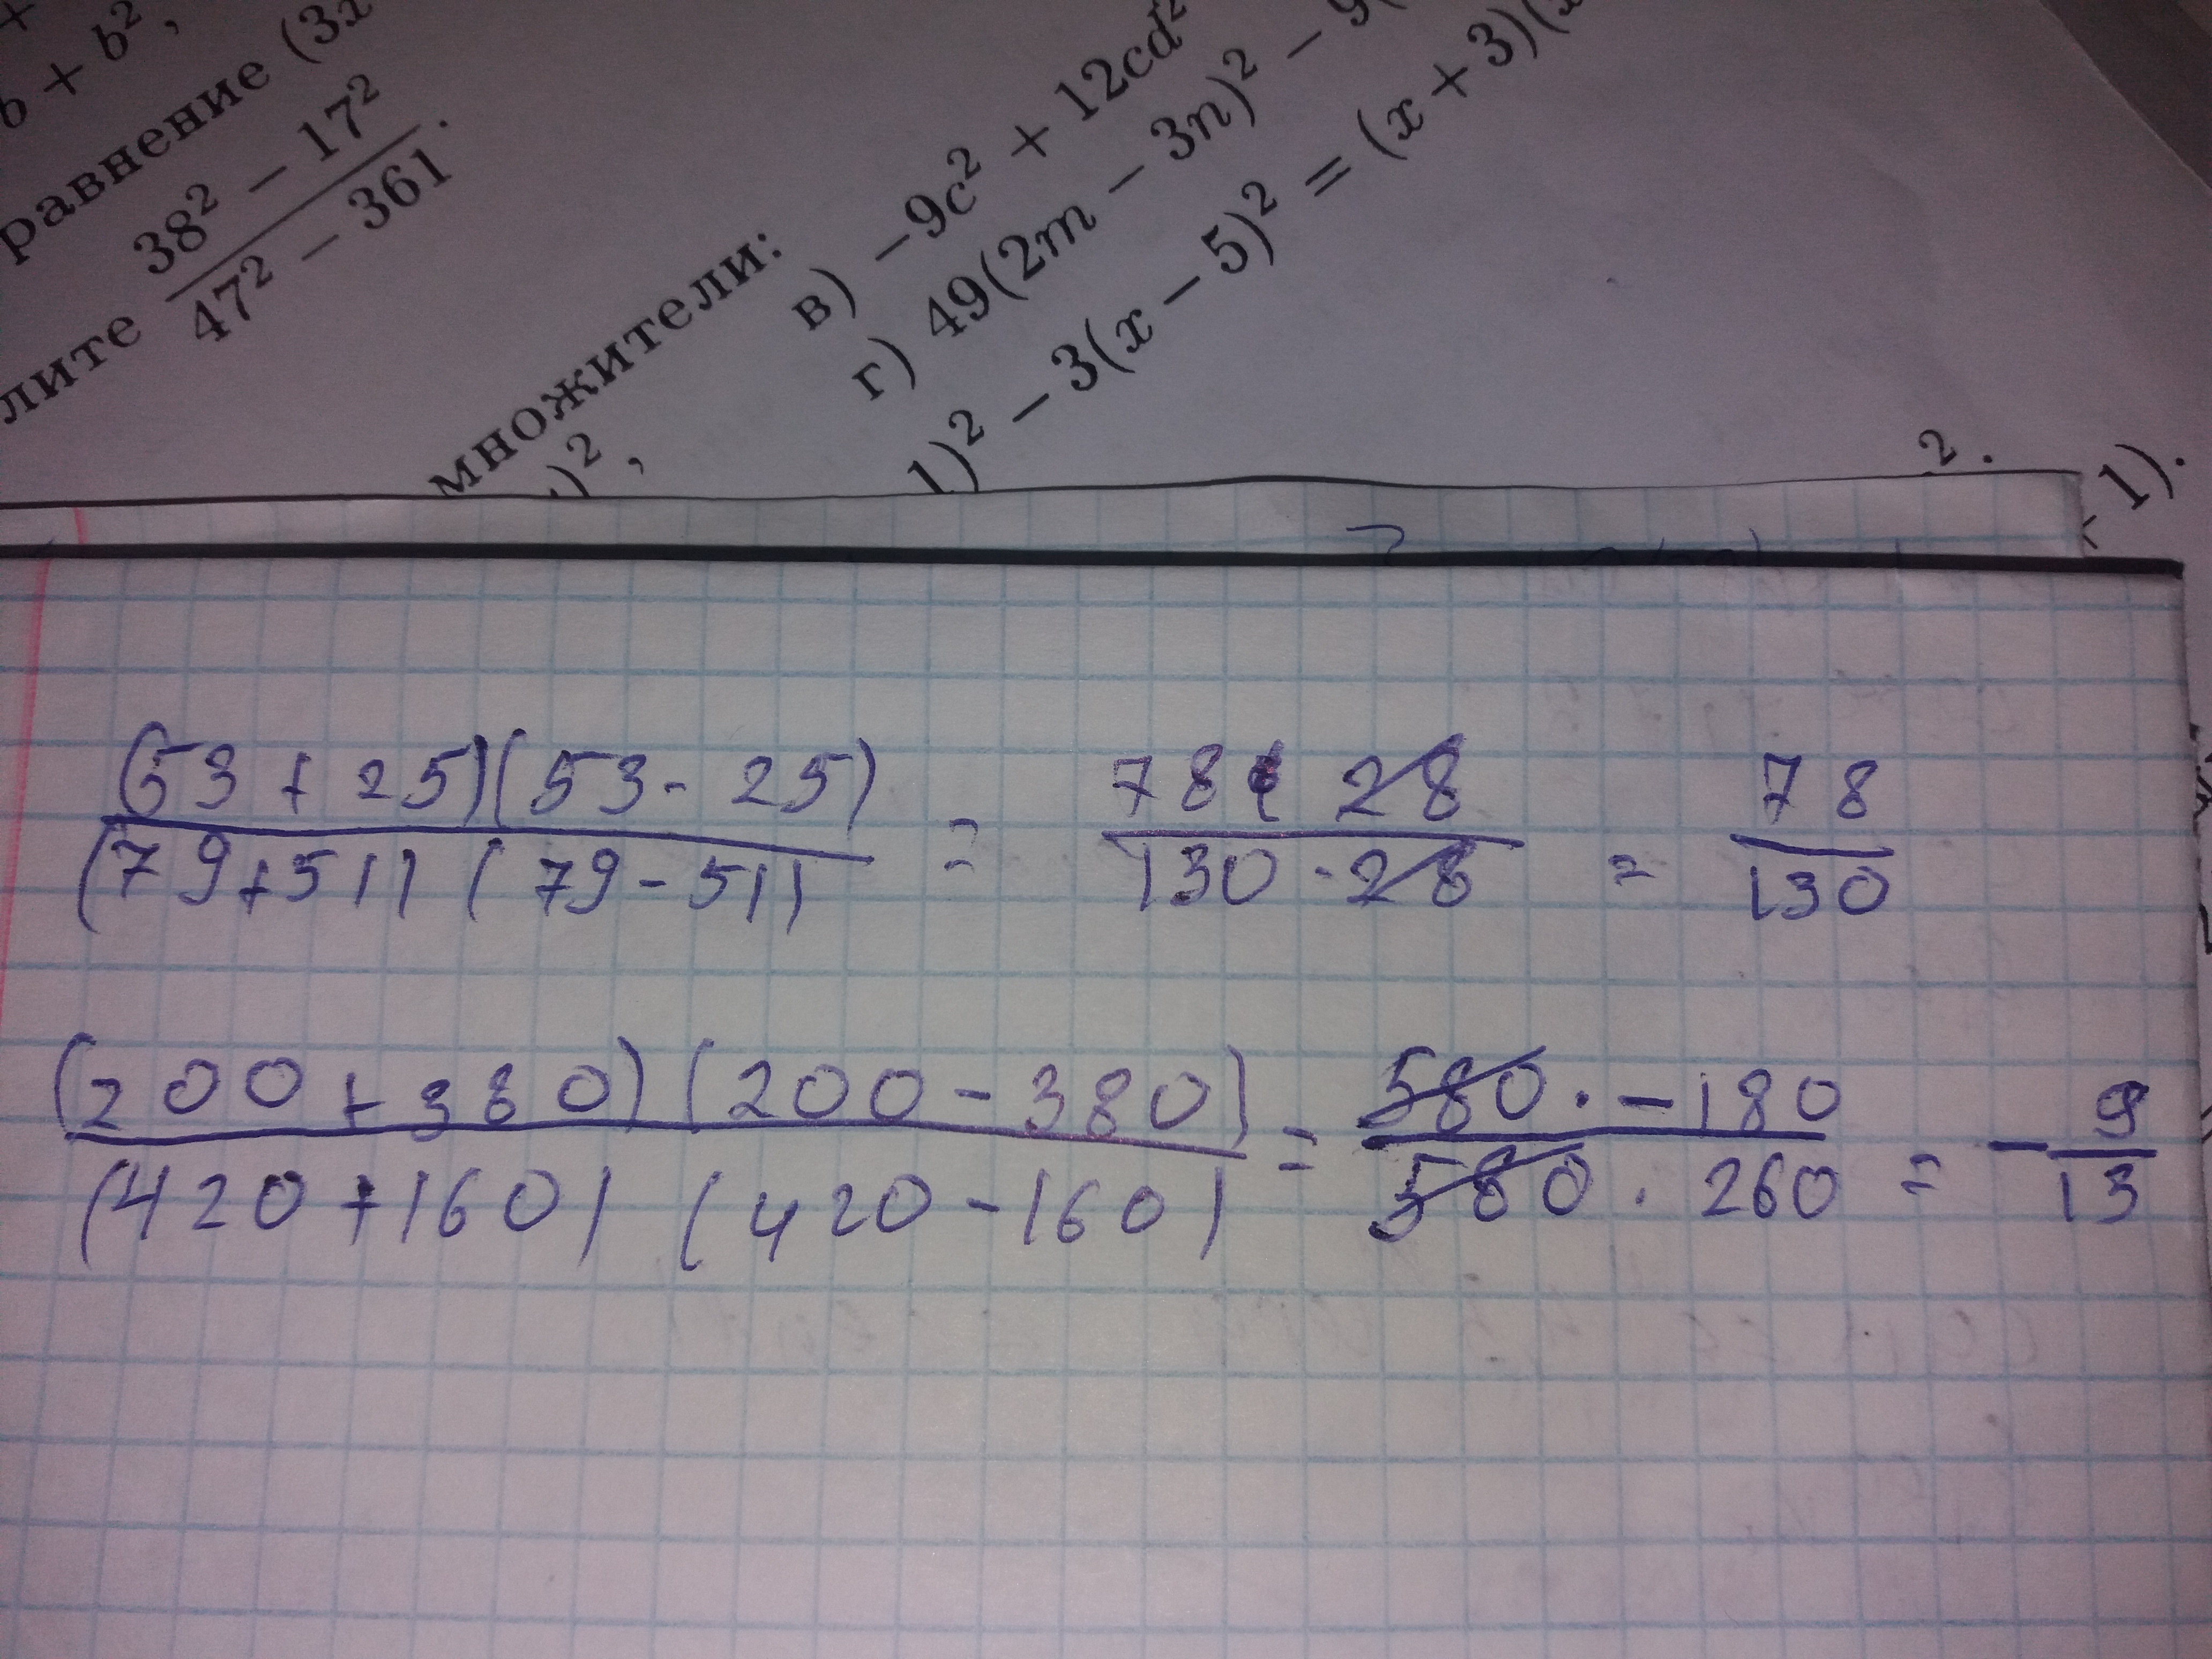 b + b²,
равнение (3x
лите \frac{38² − 17²}{47² − 361}.
множители:
)²,
в) −9c² + 12cd²
г) 49(2m − 3n)² − 9(
1)² − 3(x − 5)² = (x + 3)(x
2.
1).
\frac{(53 + 25)(53 - 25)}{(79 + 51)(79 - 51)} = \frac{78 · 28}{130 · 28} = \frac{78}{130}
\frac{(200 + 380)(200 - 380)}{(420 + 160)(420 - 160)} = \frac{580 · -180}{580 · 260} = -\frac{9}{13}